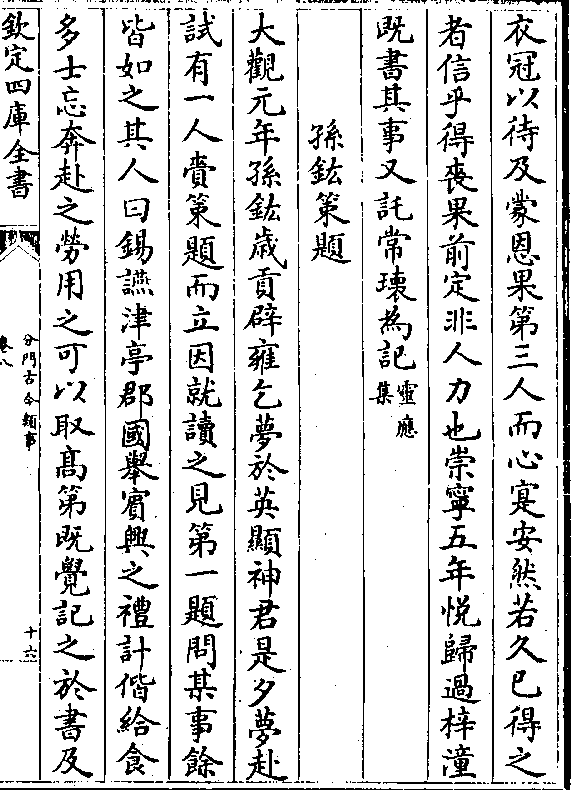 衣冠以待及蒙恩果第三人而心寔安然若久已得之
者信乎得喪果前定非人力也崇寧五年悦歸過梓潼
既書其事又託常瓌為記靈應集
孫鋐策題
大觀元年孫鋐歳貢辟雍乞夢於英顯神君是夕夢赴
試有一人賫策題而立因就讀之見第一題問某事餘
皆如之其人曰錫讌津亭郡國舉賓興之禮計偕給食
多士忘奔赴之勞用之可以取髙第既覺記之於書及
欽定四庫全書
分門古今類事
卷八
十六